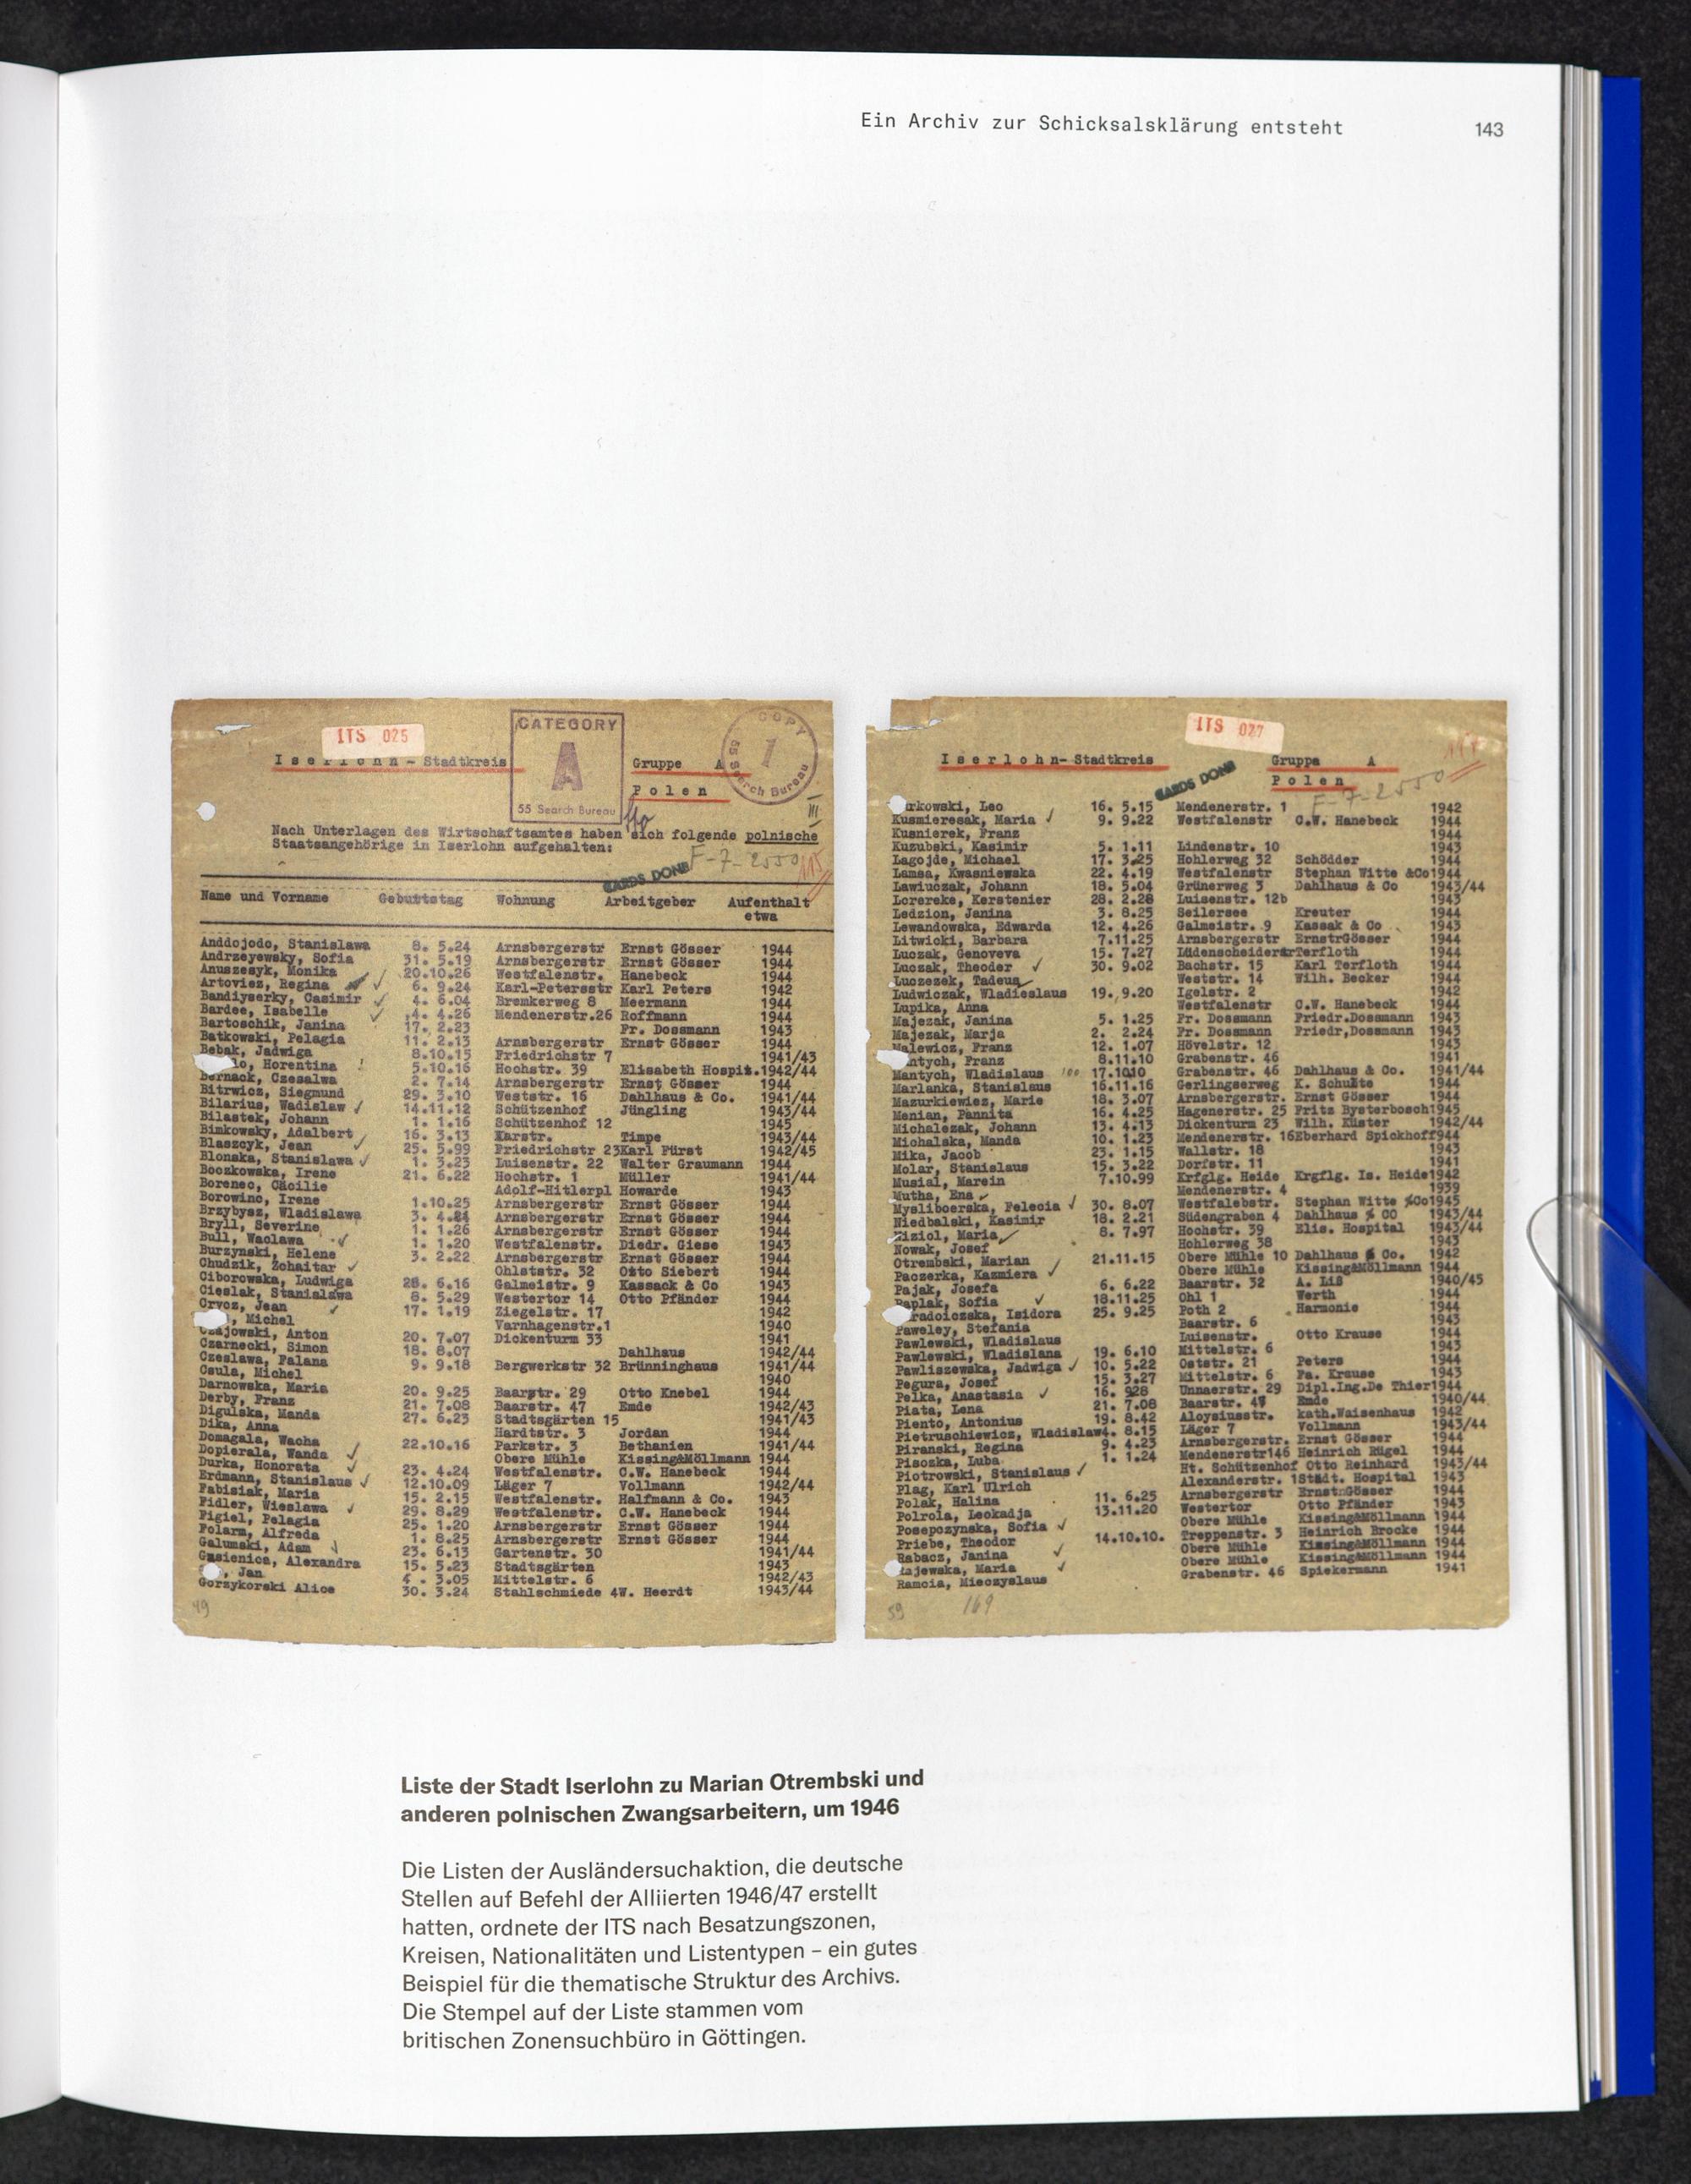 Ein Archiv zur Schicksalsklärung entsteht 143
ITS 025
CATEGORY
A
55 Search Bureau
COPY
1
55 Search Bureau
Iserlohn-Stadtkreis
Gruppe A
Polen
III
Nach Unterlagen des Wirtschaftsamtes haben sich folgende polnische
Staatsangehörige in Iserlohn aufgehalten:
F-7-2550
115
CARDS DONE
Name und Vorname Geburtstag Wohnung Arbeitgeber Aufenthalt
etwa
Anddojodo, Stanislawa 8. 5.24 Arnsbergerstr Ernst Gösser 1944
Andrzeyewsky, Sofia 31. 5.19 Arnsbergerstr Ernst Gösser 1944
Anuszesyk, Monika 20.10.26 Westfalenstr. Hanebeck 1944
Artoviez, Regina 6. 9.24 Karl-Petersstr Karl Peters 1942
Bandiyserky, Casimir 4. 6.04 Bremkerweg 8 Meermann 1944
Bardee, Isabelle 4. 4.26 Mendenerstr.26 Roffmann 1944
Bartoschik, Janina 17. 2.23 Fr. Dossmann 1943
Batkowski, Pelagia 11. 2.13 Arnsbergerstr Ernst Gösser 1944
Bebak, Jadwiga 8.10.15 Friedrichstr 7 1941/43
lo, Horentina 5.10.16 Hochstr. 39 Elisabeth Hospit.1942/44
Bernack, Czesalwa 2. 7.14 Arnsbergerstr Ernst Gösser 1944
Bitrwicz, Siegmund 29. 3.10 Weststr. 16 Dahlhaus & Co. 1941/44
Bilarius, Wadislaw 14.11.12 Schützenhof Jüngling 1943/44
Bilastek, Johann 1. 1.16 Schützenhof 12 1945
Bimkowsky, Adalbert 16. 3.13 Karstr. Timpe 1943/44
Blaszcyk, Jean 25. 5.99 Friedrichstr 23Karl Fürst 1942/45
Blonska, Stanislawa 1. 3.23 Luisenstr. 22 Walter Graumann 1944
Boczkowska, Irene 21. 6.22 Hochstr. 1 Müller 1941/44
Borenec, Cäcilie Adolf-Hitlerpl Howarde 1943
Borowinc, Irene 1.10.25 Arnsbergerstr Ernst Gösser 1944
Brzybysz, Wladislawa 3. 4.24 Arnsbergerstr Ernst Gösser 1944
Bryll, Severine 1. 1.26 Arnsbergerstr Ernst Gösser 1944
Bull, Waclawa 1. 1.20 Westfalenstr. Diedr. Giese 1943
Burzynski, Helene 3. 2.22 Arnsbergerstr Ernst Gösser 1944
Chudzik, Zohaitar Ohlststr. 32 Otto Siebert 1944
Ciborowska, Ludwiga 28. 6.16 Galmeistr. 9 Kassack & Co 1943
Cieslak, Stanislawa 8. 5.29 Westertor 14 Otto Pfänder 1944
Crycz, Jean 17. 1.19 Ziegelstr. 17 1942
, Michel Varnhagenstr.1 1940
Czajowski, Anton 20. 7.07 Dickenturm 33 1941
Czarnecki, Simon 18. 8.07 Dahlhaus 1942/44
Czeslawa, Falana 9. 9.18 Bergwerkstr 32 Brünninghaus 1941/44
Csula, Michel 1940
Darnowska, Maria 20. 9.25 Baarstr. 29 Otto Knebel 1944
Derby, Franz 21. 7.08 Baarstr. 47 Emde 1942/43
Digulska, Manda 27. 6.23 Stadtsgärten 15 1941/43
Dika, Anna Hardtstr. 3 Jordan 1944
Domagala, Wacha 22.10.16 Parkstr. 3 Bethanien 1941/44
Dopierala, Wanda Obere Mühle Kissing&Möllmann 1944
Durka, Honorata 23. 4.24 Westfalenstr. C.W. Hanebeck 1944
Erdmann, Stanislaus 12.10.09 Läger 7 Vollmann 1942/44
Fabisiak, Maria 15. 2.15 Westfalenstr. Halfmann & Co. 1943
Fidler, Wieslawa 29. 8.29 Westfalenstr. C.W. Hanebeck 1944
Figiel, Pelagia 25. 1.20 Arnsbergerstr Ernst Gösser 1944
Folarm, Alfreda 1. 8.25 Arnsbergerstr Ernst Gösser 1944
Galumski, Adam 23. 6.13 Gartenstr. 30 1941/44
Gasienica, Alexandra 15. 5.23 Stadtsgärten 1943
, Jan 4. 3.05 Mittelstr. 6 1942/43
Gorzykorski Alice 30. 3.24 Stahlschmiede 4W. Heerdt 1943/44
49
ITS 027
Iserlohn-Stadtkreis
Gruppe A
Polen
CARDS DONE
F-7-2550
arkowski, Leo 16. 5.15 Mendenerstr. 1 1942
Kusmieresak, Maria 9. 9.22 Westfalenstr C.W. Hanebeck 1944
Kusnierek, Franz 1944
Kuzubski, Kasimir 5. 1.11 Lindenstr. 10 1943
Lagojde, Michael 17. 3.25 Hohlerweg 32 Schödder 1944
Lamsa, Kwasniewska 22. 4.19 Westfalenstr Stephan Witte &Co1944
Lawiuczak, Johann 18. 5.04 Grünerweg 3 Dahlhaus & Co 1943/44
Lorereke, Kerstenier 28. 2.28 Luisenstr. 12b 1943
Ledzion, Janina 3. 8.25 Seilersee Kreuter 1944
Lewandowska, Edwarda 12. 4.26 Galmeistr. 9 Kassak & Co 1943
Litwicki, Barbara 7.11.25 Arnsbergerstr ErnstrGösser 1944
Luczak, Genoveva 15. 7.27 LüdenscheiderstrTerfloth 1944
Luczak, Theoder 30. 9.02 Bachstr. 15 Karl Terfloth 1944
Luczezek, Tadeus Weststr. 14 Wilh. Becker 1944
Ludwiczak, Wladieslaus 19. 9.20 Igelstr. 2 1942
Lupika, Anna Westfalenstr C.W. Hanebeck 1944
Majezak, Janina 5. 1.25 Fr. Dossmann Friedr.Dossmann 1943
Majezak, Marja 2. 2.24 Fr. Dossmann Friedr,Dossmann 1943
Malewicz, Franz 12. 1.07 Hövelstr. 12 1943
antych, Franz 8.11.10 Grabenstr. 46 1941
Mantych, Wladislaus 17.1010 Grabenstr. 46 Dahlhaus & Co. 1941/44
Marlanka, Stanislaus 16.11.16 Gerlingserweg K. Schulte 1944
Mazurkiewiez, Marie 18. 3.07 Arnsbergerstr. Ernst Gösser 1944
Menian, Pannita 16. 4.25 Hagenerstr. 25 Fritz Bysterbosch1945
Michalezak, Johann 13. 4.13 Dickenturm 23 Wilh. Küster 1942/44
Michalska, Manda 10. 1.23 Mendenerstr. 16Eberhard Spickhoff944
Mika, Jacob 23. 1.15 Wallstr. 18 1943
Molar, Stanislaus 15. 3.22 Dorfstr. 11 1941
Musial, Marein 7.10.99 Krfglg. Heide Krgflg. Is. Heide1942
Mutha, Ena Mendenerstr. 4 1939
Mysliboerska, Felecia 30. 8.07 Westfalebstr. Stephan Witte &Co1945
Niedbalski, Kasimir 18. 2.21 Südengraben 4 Dahlhaus & CO 1943/44
iziol, Maria 8. 7.97 Hochstr. 39 Elis. Hospital 1943/44
Nowak, Josef Hohlerweg 38 1943
Otrembski, Marian 21.11.15 Obere Mühle 10 Dahlhaus & Co. 1942
Paczerka, Kazmiera Obere Mühle Kissing&Möllmann 1944
Pajak, Josefa 6. 6.22 Baarstr. 32 A. Liß 1940/45
Paplak, Sofia 18.11.25 Ohl 1 Werth 1944
radoiczska, Isidora 25. 9.25 Poth 2 Harmonie 1944
Paweley, Stefania Baarstr. 6 1943
Pawlewski, Wladislaus Luisenstr. Otto Krause 1944
Pawlewski, Wladislana 19. 6.10 Mittelstr. 6 1943
Pawliszewska, Jadwiga 10. 5.22 Oststr. 21 Peters 1944
Pegura, Josef 15. 3.27 Mittelstr. 6 Fa. Krause 1943
Pelka, Anastasia 16. 928 Unnaerstr. 29 Dipl.Ing.De Thier1944
Piata, Lena 21. 7.08 Baarstr. 47 Emde 1940/44
Piento, Antonius 19. 8.42 Aloysiusstr. kath.Waisenhaus 1942
Pietruschiewicz, Wladislaw4. 8.15 Läger 7 Vollmann 1943/44
Piranski, Regina 9. 4.23 Arnsbergerstr. Ernst Gösser 1944
Pisozka, Luba 1. 1.24 Mendenerstr146 Heinrich Rügel 1944
Piotrowski, Stanislaus Ht. Schützenhof Otto Reinhard 1943/44
Plag, Karl Ulrich Alexanderstr. 1Städt. Hospital 1943
Polak, Halina 11. 6.25 Arnsbergerstr ErnstnGösser 1944
Polrola, Leokadja 13.11.20 Westertor Otto Pfänder 1943
Posepozynska, Sofia Obere Mühle Kissing&Möllmann 1944
Priebe, Theodor 14.10.10. Treppenstr. 3 Heinrich Brocke 1944
Rabacz, Janina Obere Mühle Kissing&Möllmann 1944
ajewska, Maria Obere Mühle Kissing&Möllmann 1944
Ramcia, Mieczyslaus Grabenstr. 46 Spiekermann 1941
59 169
Liste der Stadt Iserlohn zu Marian Otrembski und
anderen polnischen Zwangsarbeitern, um 1946
Die Listen der Ausländersuchaktion, die deutsche
Stellen auf Befehl der Alliierten 1946/47 erstellt
hatten, ordnete der ITS nach Besatzungszonen,
Kreisen, Nationalitäten und Listentypen – ein gutes
Beispiel für die thematische Struktur des Archivs.
Die Stempel auf der Liste stammen vom
britischen Zonensuchbüro in Göttingen.